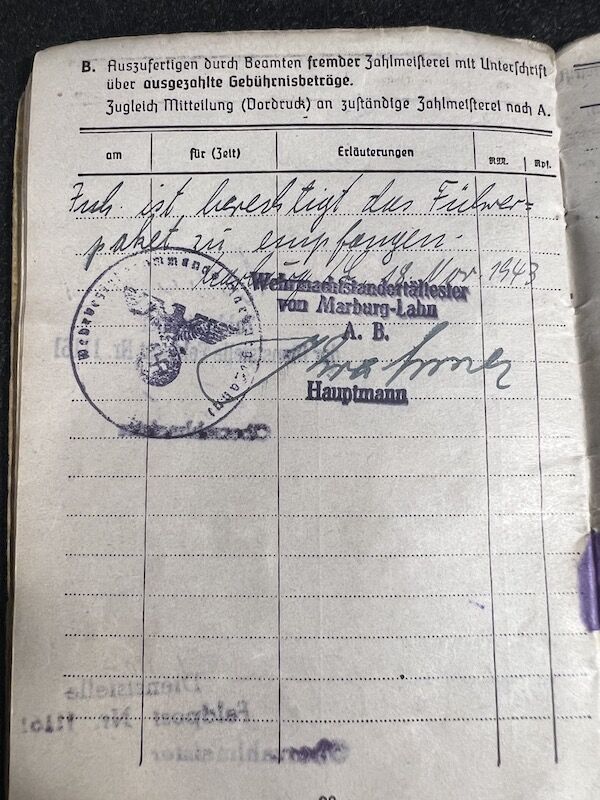 B. Auszufertigen durch Beamten fremder Zahlmeisterei mit Unterschrift
über ausgezahlte Gebührnisbeträge.
Zugleich Mitteilung (Vordruck) an zuständige Zahlmeisterei nach A.
am für (Zeit) Erläuterungen RM. Rpf.
Inh. ist berechtigt das Führer=
paket zu empfangen.
19. Nov. 1943
Wehrmachtstandortältester
von Marburg-Lahn
A. B.
Hauptmann
Dienststelle
Feldpost Nr.